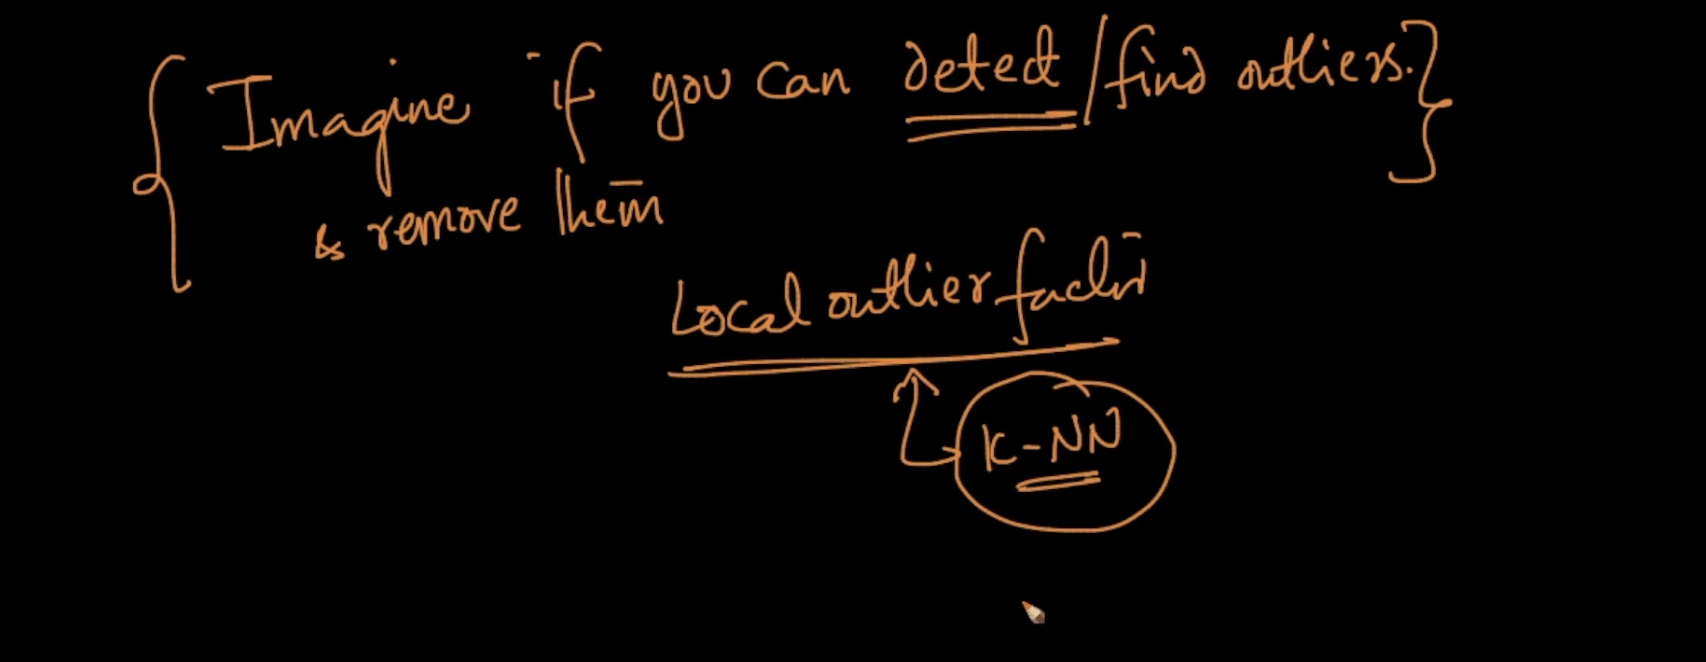 Imagine if you can detect/find outliers.
& remove them
Local outlier factor
K-NN